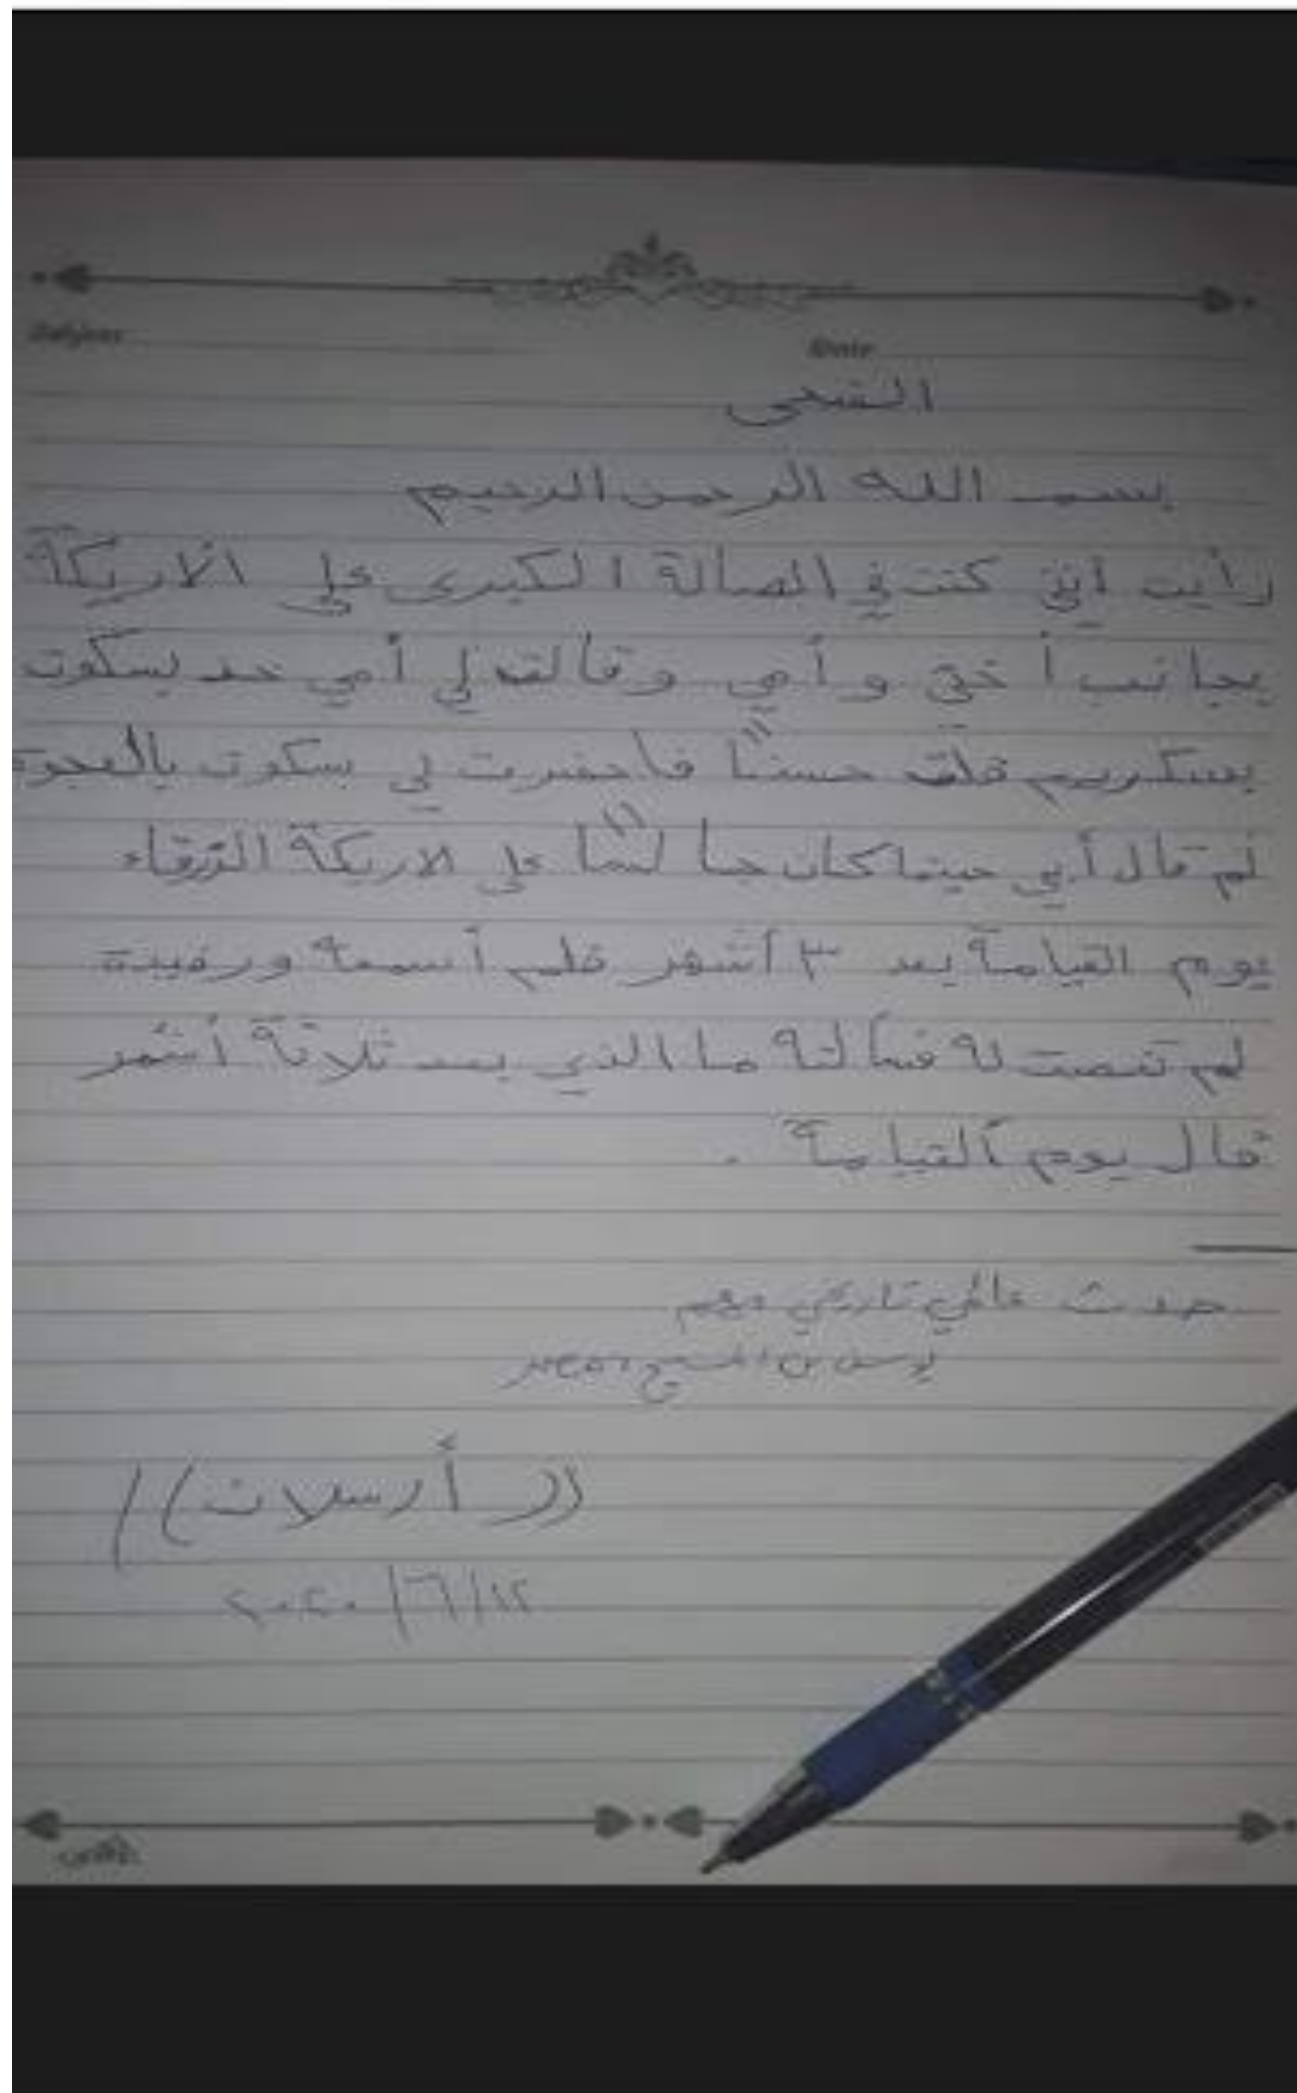 Subject
Date
الضحى
بسم الله الرحمن الرحيم
رأيت أني كنت في الصالة الكبرى على الأريكة
بجانب أختي وأمي وقالت لي أمي خد بسكوت
بسكريم قلت حسنًا فأحضرت لي بسكوت بالعجوة
ثم قال أبي حينما كان جالسًا على الاريكة الزرقاء
يوم القيامة بعد ٣ أشهر فلم أسمعه ورفيدة
لم تنصت له فسألته ما الذي بعد ثلاثة أشهر
قال يوم القيامة .
حدث عالمي تاريخي مهم
يوسف بن المسيح
((أرسلان))
١٢/٦/٢٠٢٠